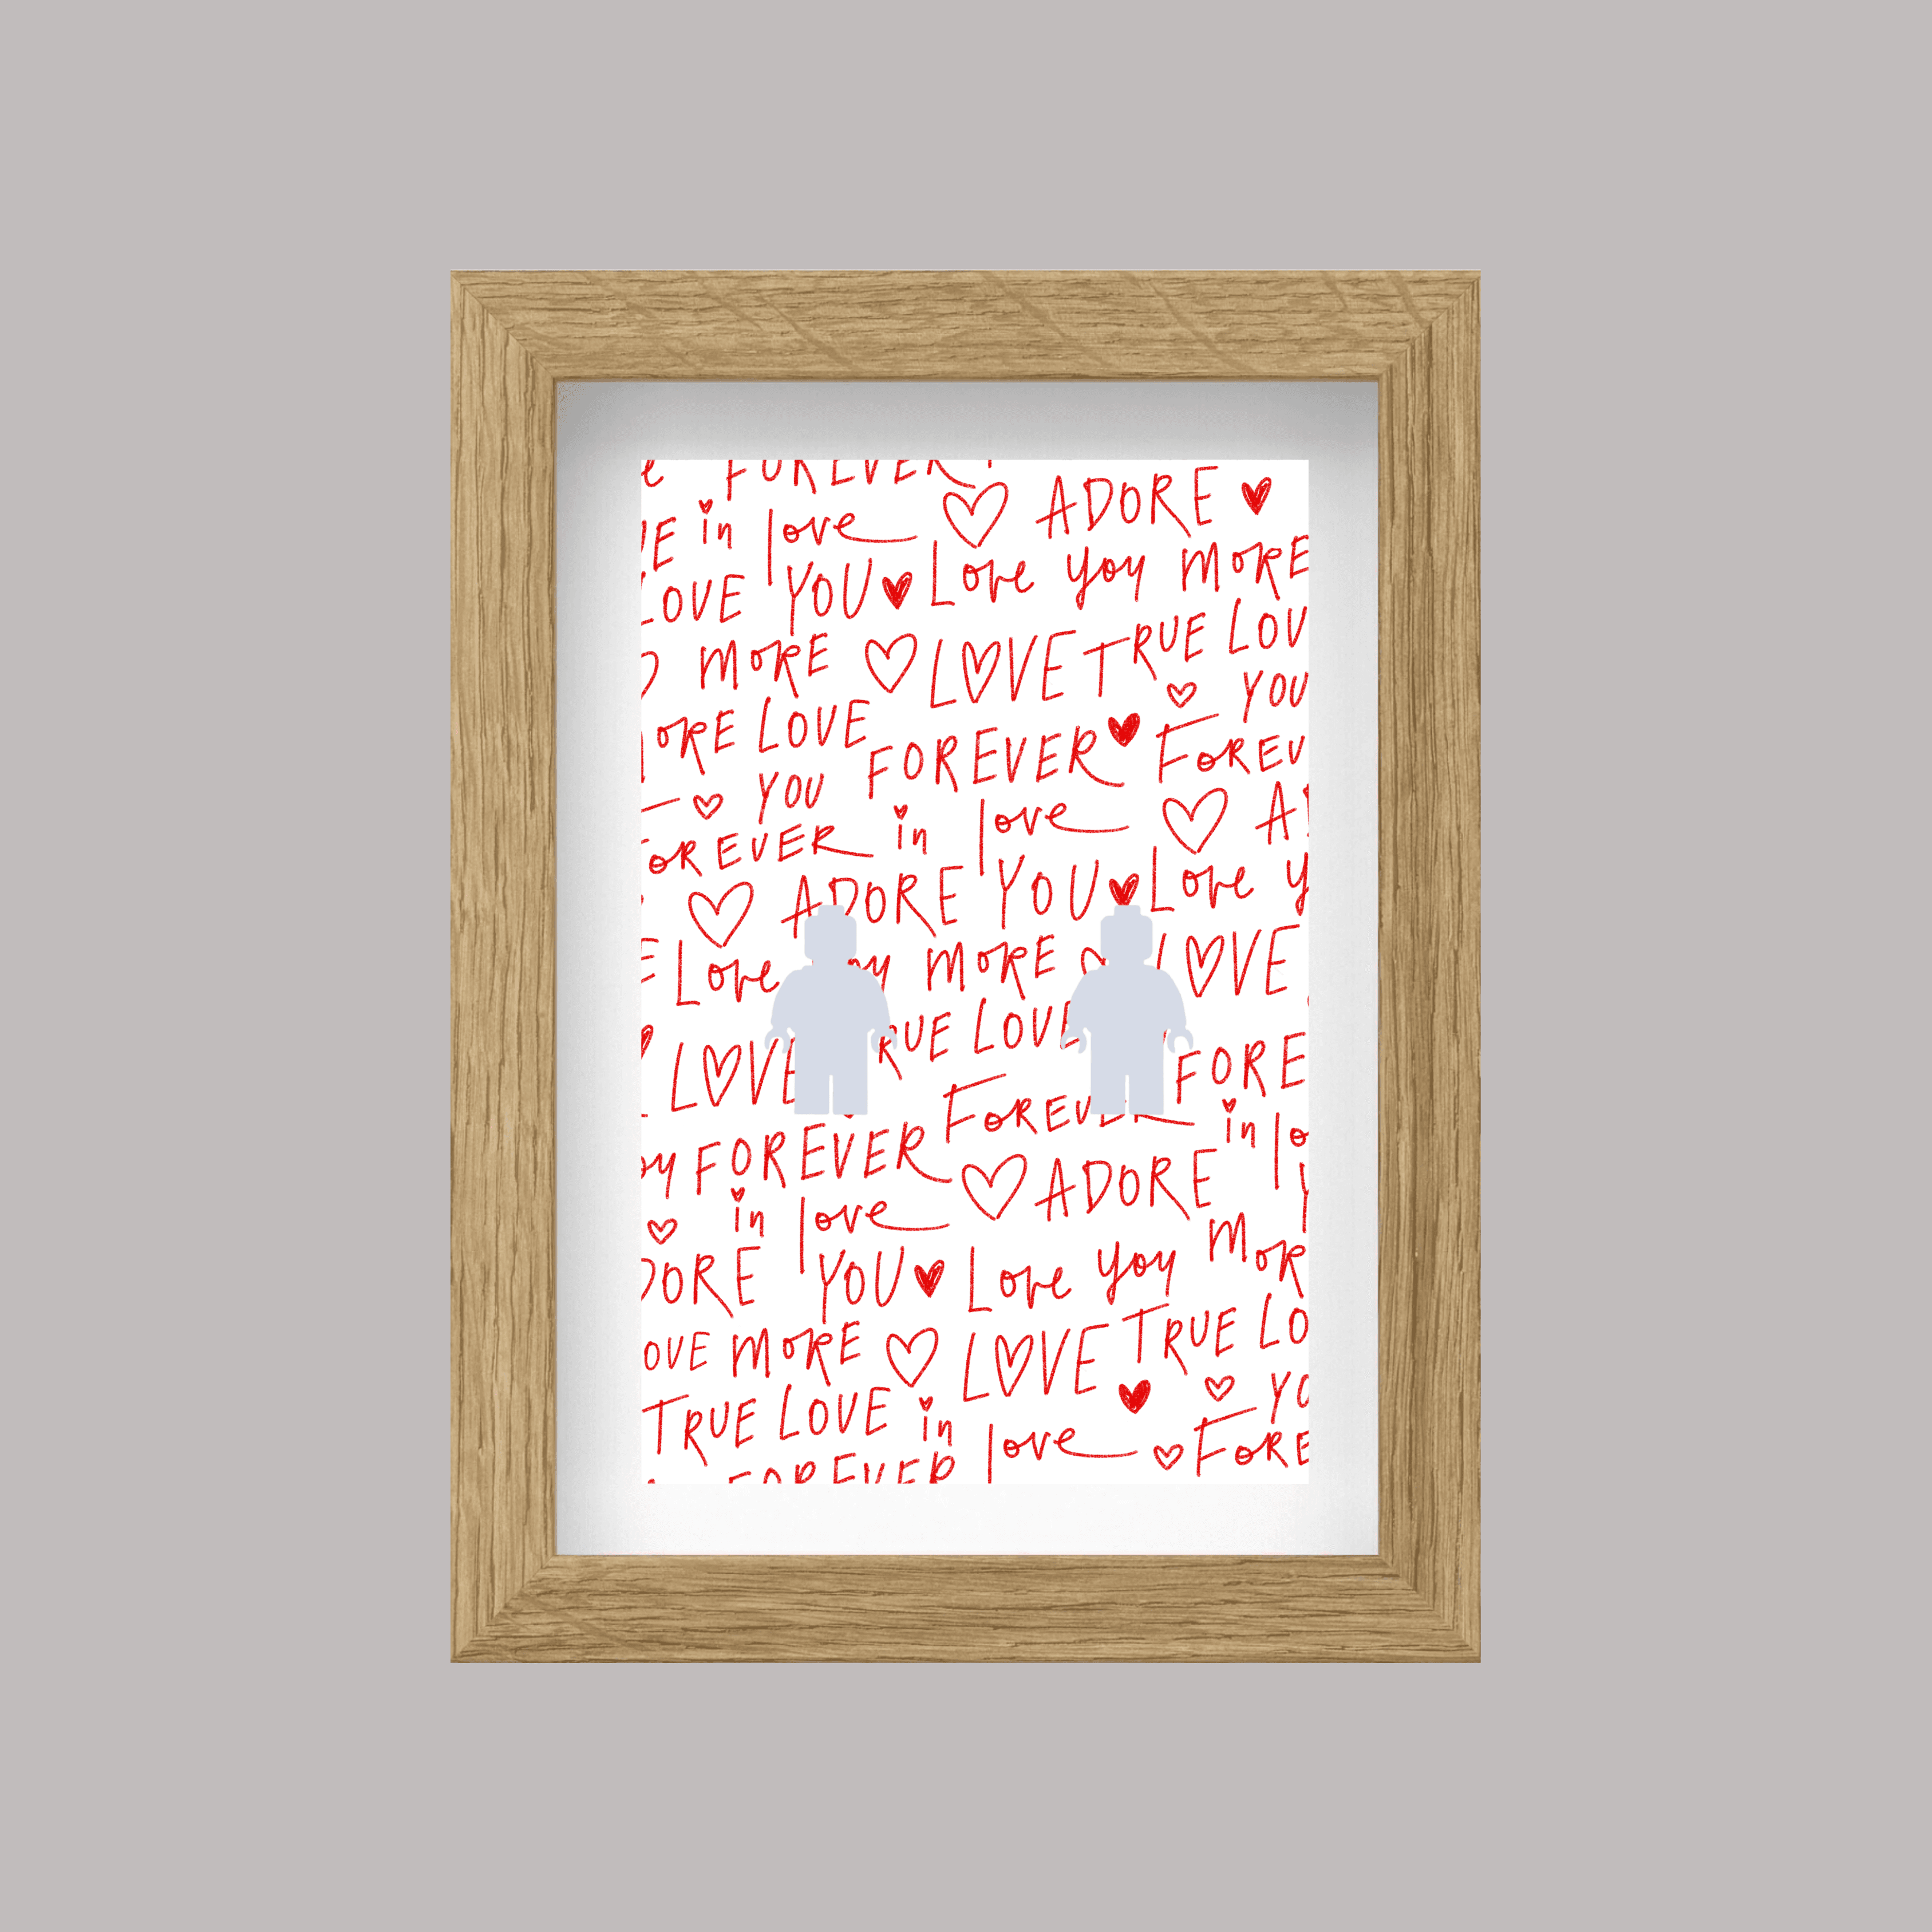 FOREVER
in love ADORE
LOVE YOU Love you MORE
MORE LOVE TRUE LOV
ORE LOVE YOU
YOU FOREVER FOREV
FOREVER in love A
ADORE YOU Love y
Love MORE LOVE
LOVE RUE LOVE FORE
FOREVER in lo
oy FOREVER ADORE
in love
DORE YOU Love you MOR
OVE MORE LOVE TRUE LO
TRUE LOVE in love YO
FOREVER FORE